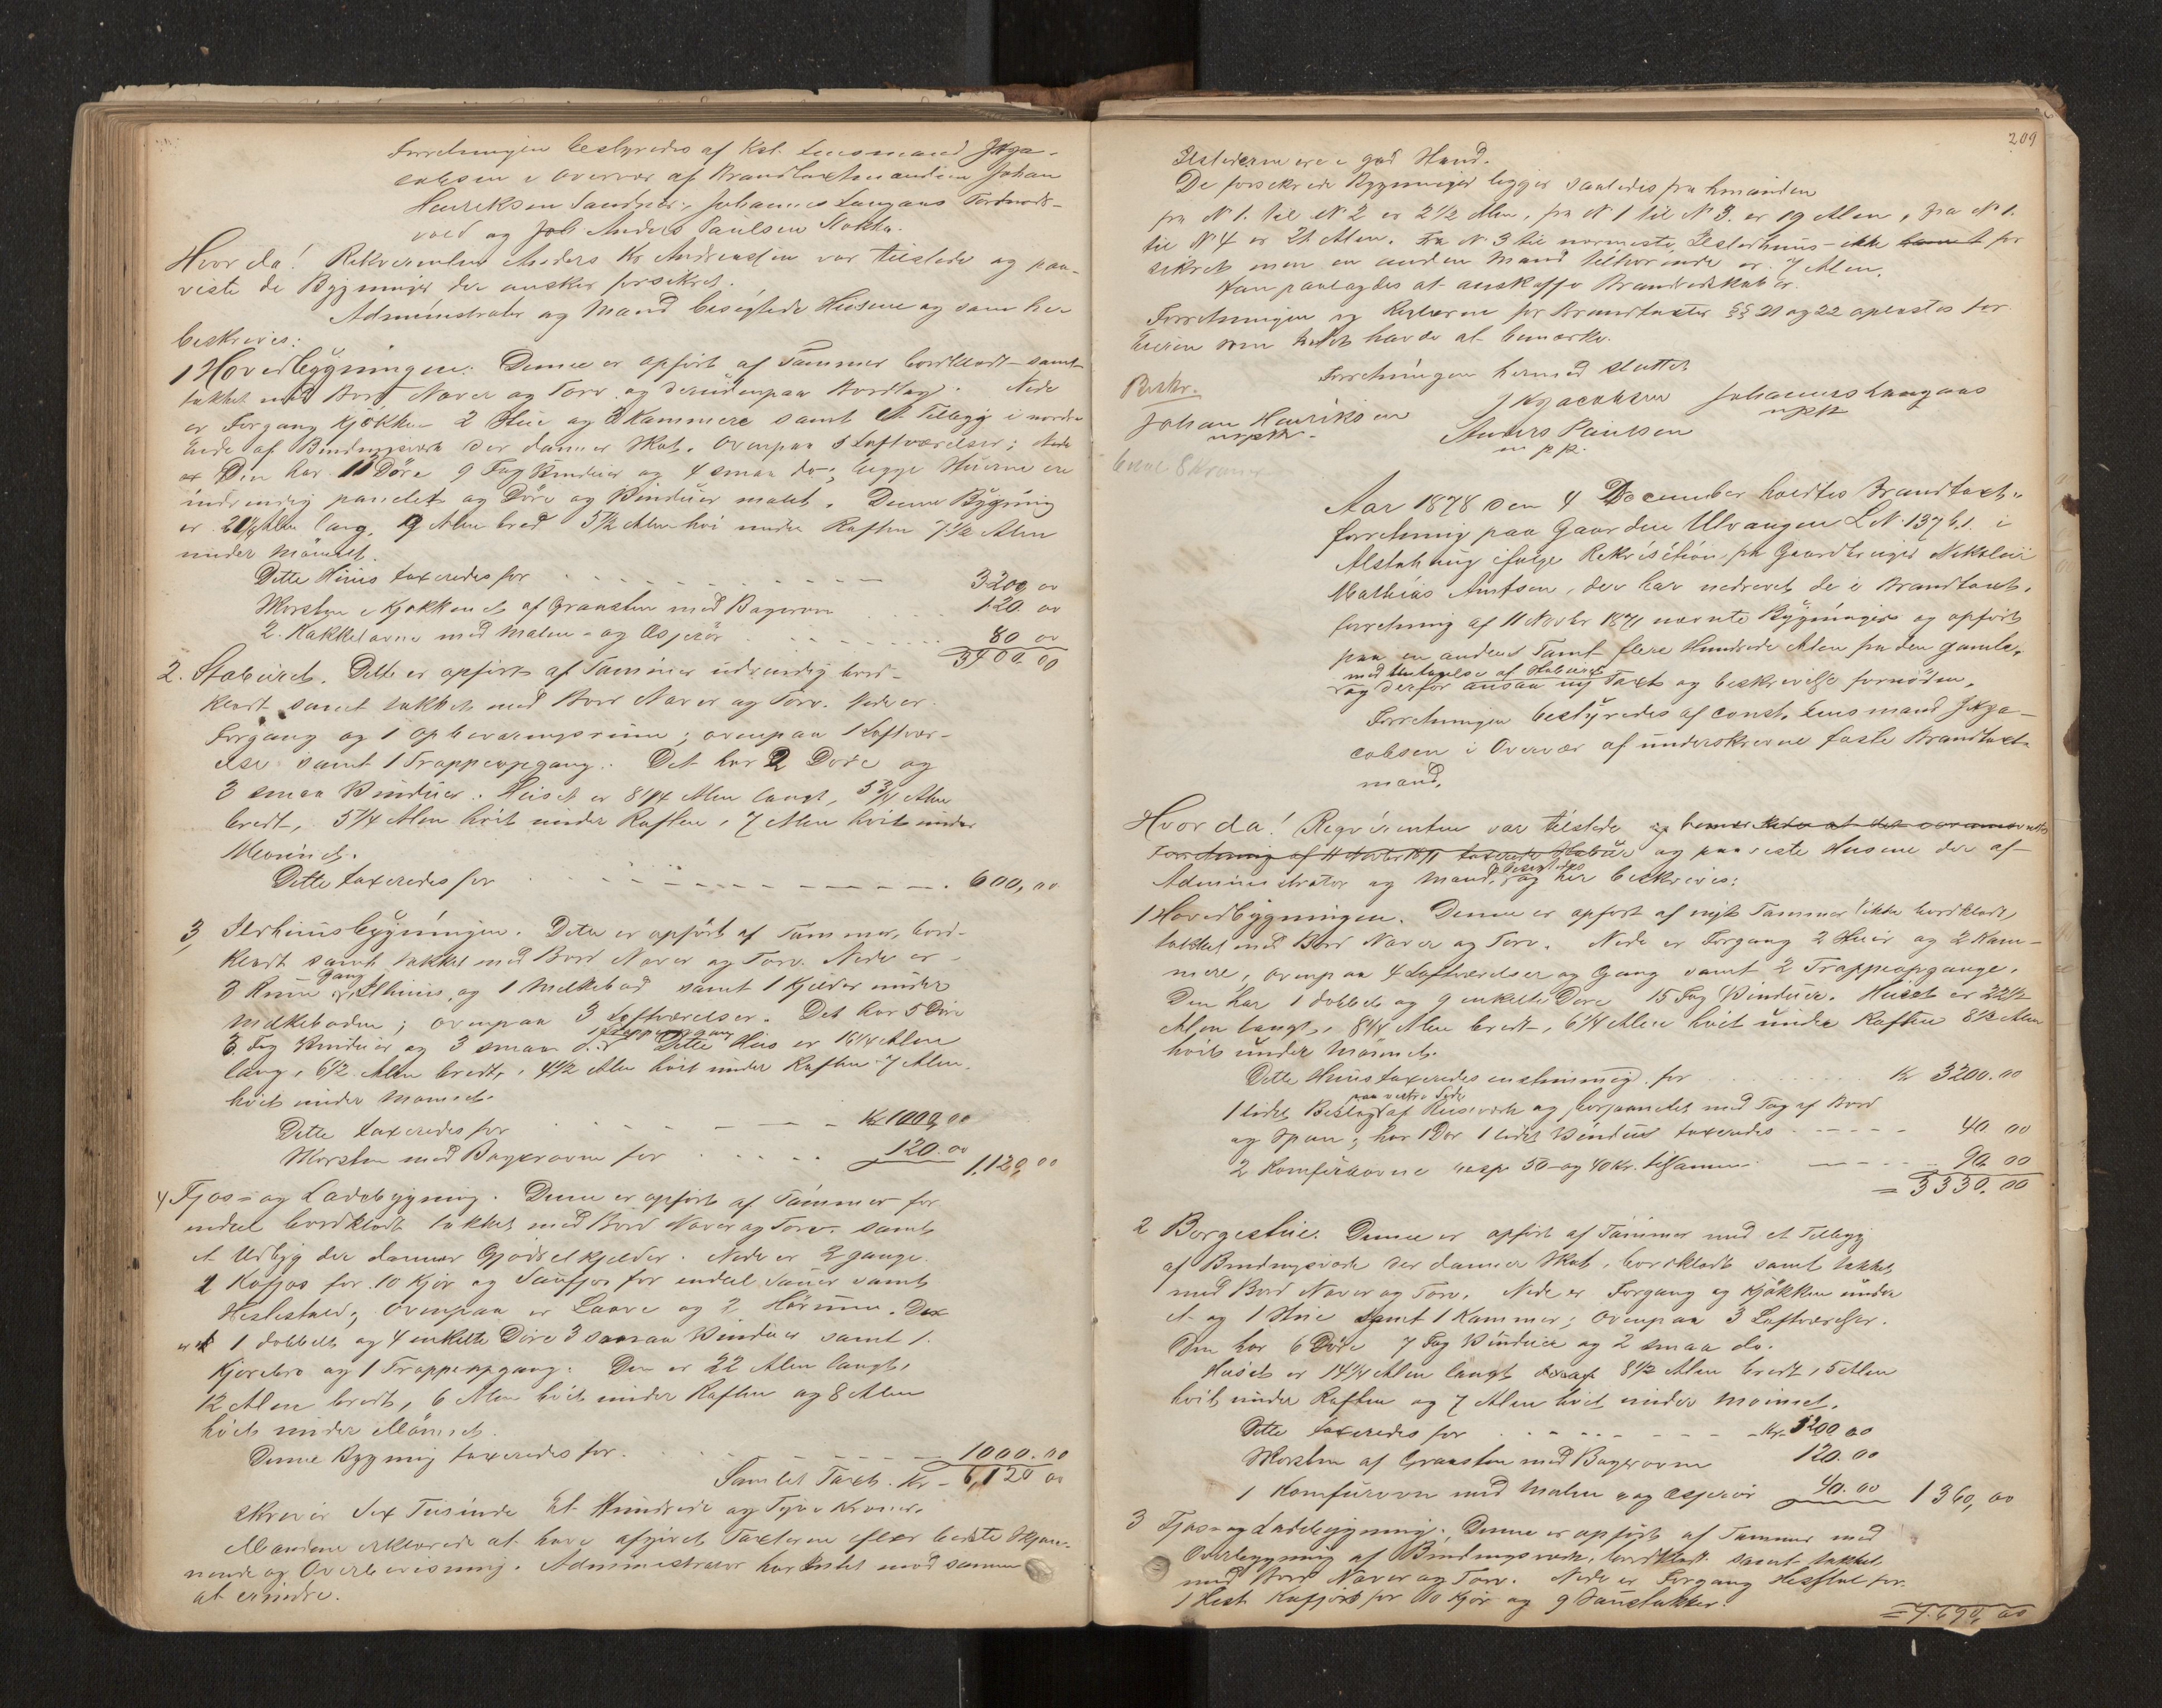 Forretningen bestyredes af Kst. Lensmand J Kja-
cobsen i Overvær af Brandtaxtmændene Johan
Henriksen Sandnes, Johannes Langaas Tordnæs-
vold og Anders Paulsen Stokka.
Hvor da! Rekvirenten Anders Kr Andreassen var tilstede og paa-
viste de Bygninger der ønskes forsikret.
Administrator og Mænd besigtede Husene og som her
beskrives:
1 Hovedbygningen. Denne er opført af Tømmer bordklædt samt
tækket med Bord Næver og Torv og derudenpaa Bordtag. Nede
er Forgang Kjøkken 2 Stue og 3 Kammere samt et Tilbygg i nordre
Ende af Bindingsværk der danner Skot. Ovenpaa 5 Loftværelser;
Den har 11 Døre 9 Fag Vinduer og 4 smaa do; begge Stuerne ere
indvendig panelet og Døre og Vinduer malet. Denne Bygning
er 21 1/4 Alen lang, 9 Alen bred 5 1/2 Alen høi under Raften 7 1/2 Alen
under Mønnet.
Dette Huus taxeredes for 3200 00
Skorsten i Kjøkkenet af Graasten med Bagerovn 120 00
2 Kakkelovne med Malm- og Æsjerør 80 00
3400.00
2. Stabüret. Dette er opført af Tømmer udvendig bord-
klædt samt tækket med Bord Næver og Torv. Nede er
Forgang og 1 Opbevaringsrum; ovenpaa 1 Loftvær-
else samt 1 Trappeopgang. Det har 2 Døre og
3 smaa Vinduer. Huset er 8 1/4 Alen langt, 5 3/4 Alen
bredt, 5 1/4 Alen høit under Raften, 7 Alen høit under
Mønnet.
Dette taxeredes for 600,00
3, Ildhuusbygningen. Dette er opført af Tømmer, bord-
klædt samt tækket med Bord Næver og Torv. Nede er
Gang
3 Rum Ildhuus, og 1 Melkebod samt 1 Kjelder under
Melkeboden; ovenpaa 3 Loftværelser. Det har 5 Døre
1 Trappeopgang
3 Fag Vinduer og 3 smaa d. Dette Hus er 16 1/4 Alen
lang, 6 1/2 Alen bredt, 4 1/2 Alen høit under Raften 7 Alen
høit under Mønnet.
Dette taxeredes for Kr 1000,00
Skorsten med Bagerovn for 120.00 1,120 00
4 Fjos- og Ladebygning. Denne er opført af Tømmer for
endeel bordklædt tækket med Bord Næver og Torv samt
et Udbyg der danner Gjødselkjelder. Nede er 2 gange
1 Kofjos for 10 Kjør og Saufjos for endeel Sauer samt
Hestestald; Ovenpaa er Laave og 2 Hørum. Der
er 1 dobbelt og 4 enkelte Døre 3 smaa Vinduer samt 1
Kjørebro og 1 Trappeopgang. Den er 22 Alen langt,
12 Alen bredt, 6 Alen høit under Raften og 8 Alen
høit under Mønnet.
Denne Bygning taxeredes for 1000.00
Samlet Taxt. Kr - 6,120 00
skriver Sex Tusinde Et Hundrede og Tyve Kroner.
Mændene erklærede at have afgivet Taxterne efter bedste Skjøn-
nende og Overbevisning. Administrator har Intet mod samme
at erindre.
209
Ildstederne ere i god Stand.
De forsikrede Bygninger ligger saaledes fra hinanden
fra N 1. til N 2 er 2 1/2 Alen, fra N 1 til N 3. er 19 Alen, fra N 1.
til N 4 er 21 Alen. Fra N 3 til nærmeste Ildsterhuus - ikke for
sikret men en anden Mand tilhørende er 7 Alen.
Han paalagdes at anskaffe Brandredskaber.
Forretningen og Reglerne for Brandtaxter §§ 21 og 22 oplæstes for
Eieren som Intet havde at bemærke.
Forretningen hermed sluttet
Beskr.
J Kjacobsen Johannes Langaas
mpp
Johan Henriksen
mpp
Anders Paulsen
m p p.
Aar 1878 den 4 December holdtes Brandtaxt-
forretning paa Gaarden Ulvangen L N. 137 b.1. i
Alstahaug ifølge Rekvisition fra Gaardbruger Nikolai
Mathias Arntsen, der har nedrevet de i Brandtaxt-
forretning af 11 Novbr 1871 nævnte Bygninger og opført
paa en anden Tomt flere Hundrede Alen fra den gamle,
med Undtagelse af Stabüret
og derfor ansaa ny Taxt og beskrivelse fornøden.
Forretningen bestyredes af const. Lensmand J Kja-
cobsen i Overvær af underskrevne faste Brandtaxt-
mænd.
Hvor da! Reqvirenten var tilstede og bemærkede at det var
Forretning af 11 Novbr 1871 taxerede Stabür og paaviste Husene der af
Administrator og Mænd og her beskrives:
1 Hovedbygningen. Denne er opført af nyt Tømmer ikke bordklædt,
tækket med Bord Næver og Torv. Nede er Forgang 2 Stuer og 2 Kam-
mere, ovenpaa 4 Loftværelser og Gang samt 2 Trappeopgange.
Den har 1 dobbelt og 9 enkelte Døre 15 Fag Vinduer. Huset er 22 1/2
Alen langt, 8 1/4 Alen bredt, 6 1/4 Alen høit under Raften 8 1/2 Alen
høit under Mønnet.
Dette Huus taxeredes enstemmig for Kr 3200.00
paa vestre Side
1 lidet Beslag af Reisværk og bordpanelet med Tag af Bord
og Spon; har 1 Dør 1 lidet Vindue taxeredes 40 00
2 Komfurovne resp 50 og 40 Kr. tilsammen 90 00
= 3330.00
2 Borgestüe. Denne er opført af Tømmer med et Tilbygg
af Bindingsværk der danner Skot, bordklædt samt tækket
med Bord Næver og Torv. Nede er Forgang og Kjøkken under
et og 1 Stue samt 1 Kammer; ovenpaa 3 Loftværelser.
Den har 6 Døre 7 Fag Vinduer og 2 smaa do.
Huset er 14 1/4 Alen langt 8 1/2 Alen bredt, 5 Alen
høit under Raften og 7 Alen høit under Mønnet.
Dette taxeredes for Kr. 1200 00
Skorsten af Graasten med Bagerovn 120.00
1 Komfurovn med Malm og Æsjerør 40.00 1360,00
3 Fjos- og Ladebygning. Denne er opført af Tømmer med
Overbygning af Bindingsværk, bordklædt samt tækket
med Bord Næver og Torv. Nede er Forgang Hestestal for
1 Hest Kofjos for 10 Kjør og
= 4.690,00